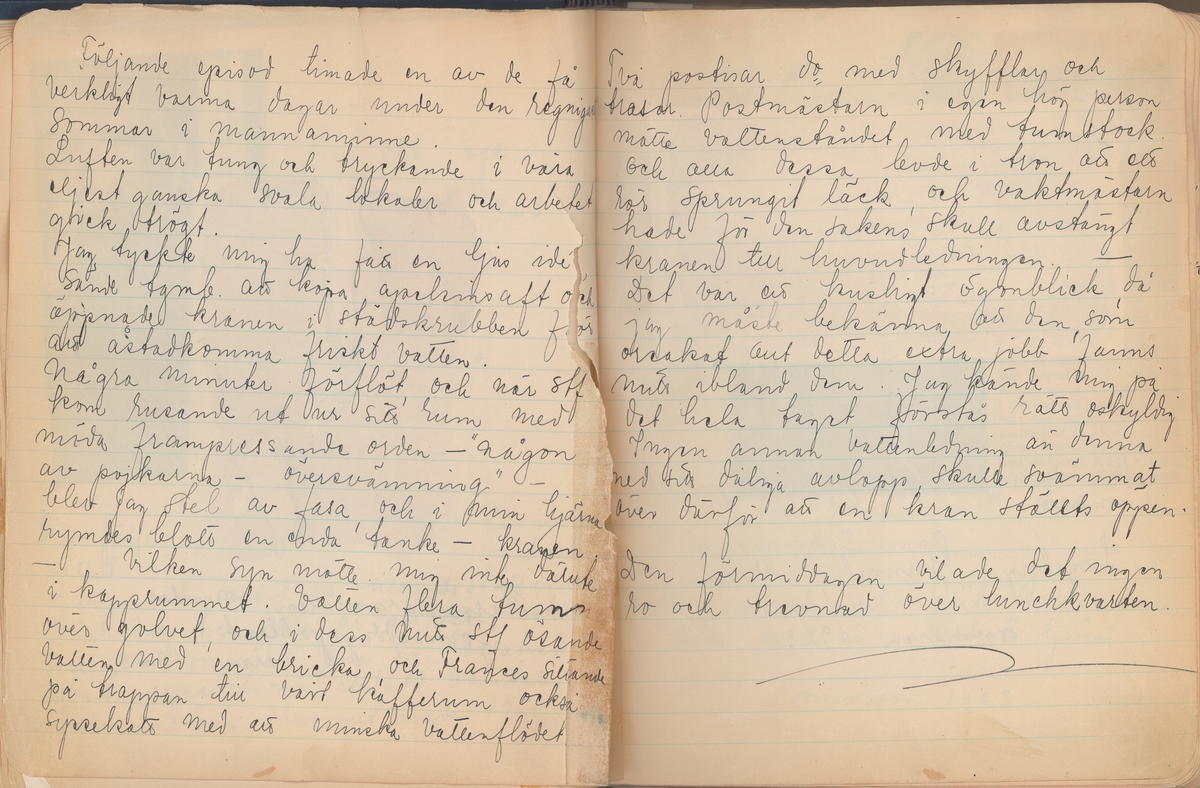 Följande episod timade en av de få
verkligt varma dagar under den regniga
sommar i mannaminne.
Luften var tung och tryckande i våra
eljest ganska svala lokaler och arbetet
gick trögt.
Jag tyckte mig ha fått en ljus idé,
sände tgmb. att köpa apelsinsaft och
öppnade kranen i städskrubben för
att åstadkomma friskt vatten.
Några minuter förflöt, och när stf
kom rusande ut ur sitt rum med
möda frampressande orden – "någon
av pojkarna – översvämning" –
blev jag stel av fasa, och i min hjärna
rymdes blott en enda tanke – kranen.
– Vilken syn mötte mig inte därute
i kapprummet. Vatten flera tum
över golvet, och i dess mitt stf ösande
vatten med en bricka, och Frances sittande
på trappan till vårt kafferum också
sysselsatt med att minska vattenflödet
Två postisar do med skyfflar och
trasor. Postmästarn i egen hög person
mätte vattenståndet med tumstock.
Och alla dessa levde i tron att ett
rör sprungit läck, och vaktmästarn
hade för den sakens skull avstängt
kranen till huvudledningen. —
Det var ett kusligt ögonblick, då
jag måste bekänna, att den, som
orsakat allt detta extra jobb, fanns
mitt ibland dem. Jag kände mig på
det hela taget förstås rätt oskyldig
Ingen annan vattenledning än denna
med sitt dåliga avlopp skulle svämmat
över därför att en kran ställts öppen.
Den förmiddagen vilade det ingen
ro och trevnad över lunchkvarten.